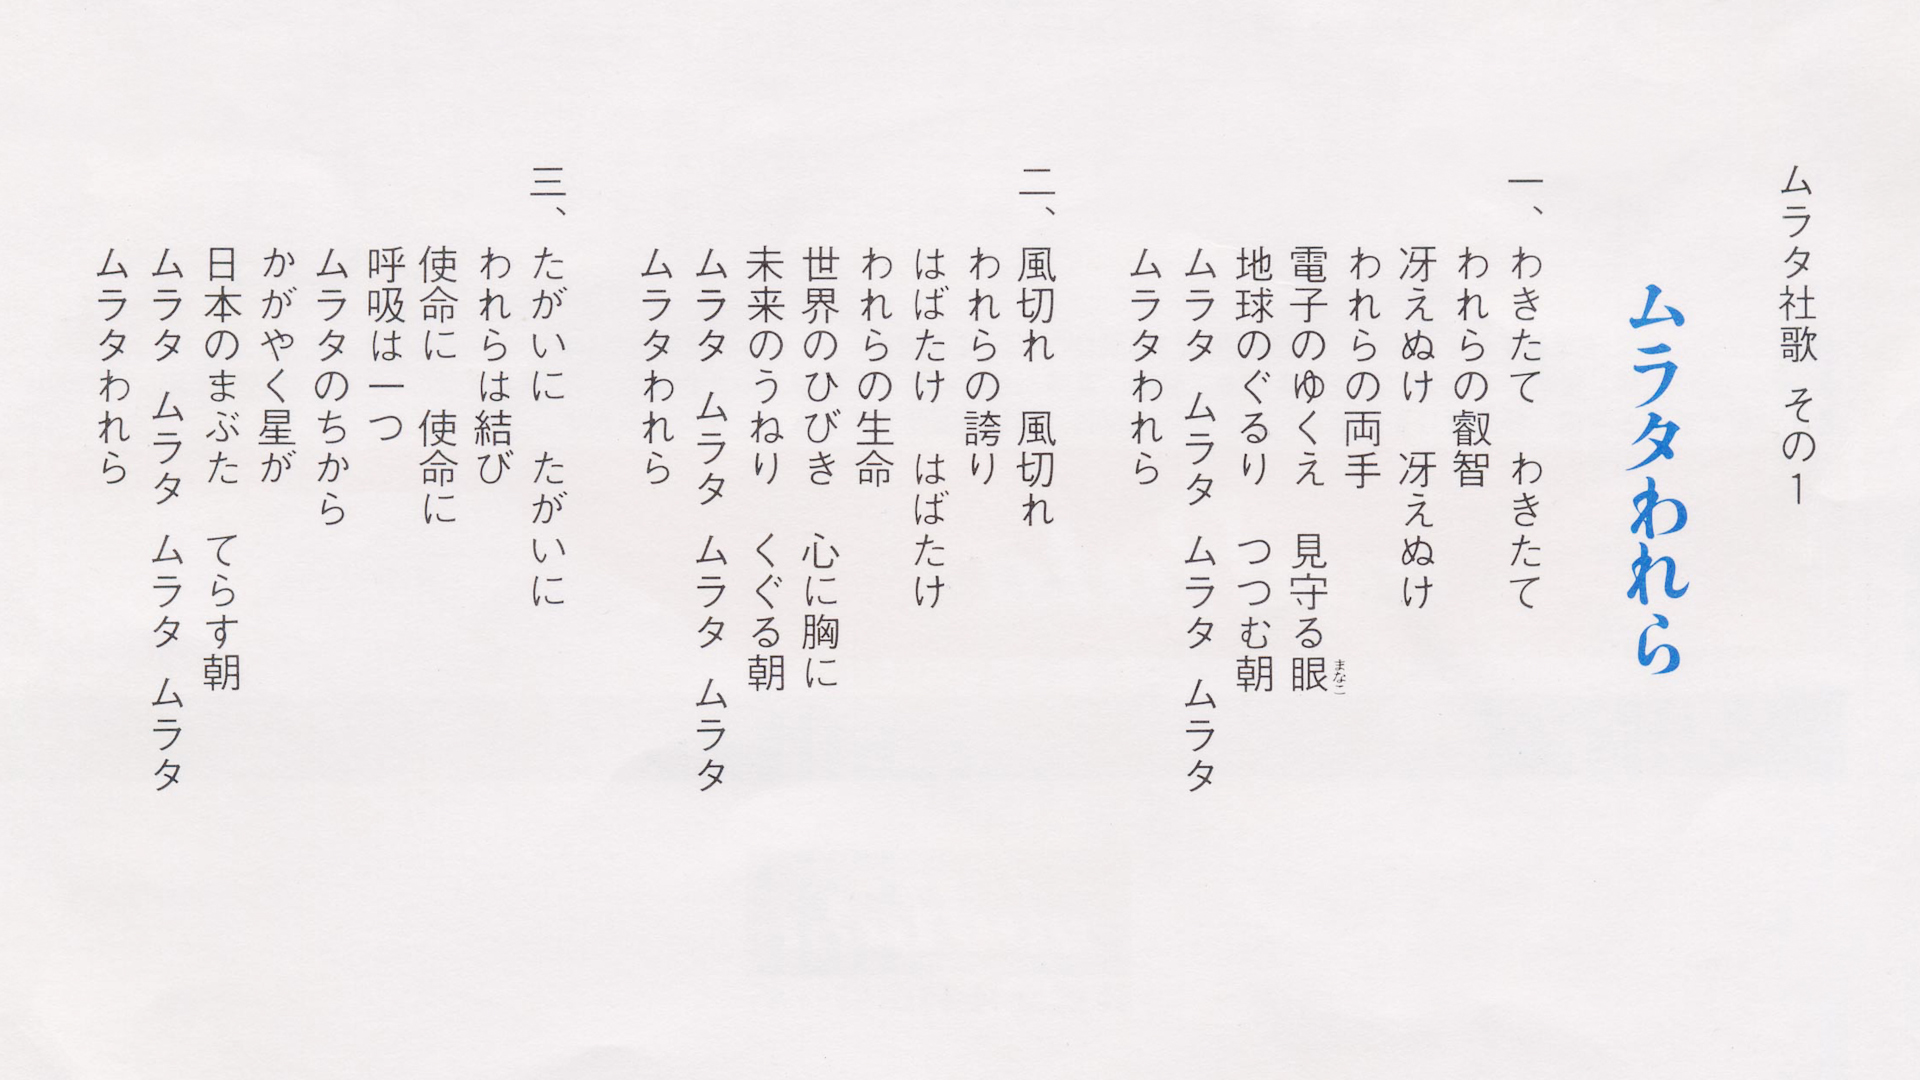 ムラタ社歌 その1
ムラタわれら
一、わきたて わきたて
われらの叡智
冴えぬけ 冴えぬけ
われらの両手
電子のゆくえ 見守る眼
まなこ
地球のぐるり つつむ朝
ムラタ ムラタ ムラタ ムラタ
ムラタわれら
二、風切れ 風切れ
われらの誇り
はばたけ はばたけ
われらの生命
世界のひびき 心に胸に
未来のうねり くぐる朝
ムラタ ムラタ ムラタ ムラタ
ムラタわれら
三、たがいに たがいに
われらは結び
使命に 使命に
呼吸は一つ
ムラタのちから
かがやく星が
日本のまぶた てらす朝
ムラタ ムラタ ムラタ ムラタ
ムラタわれら